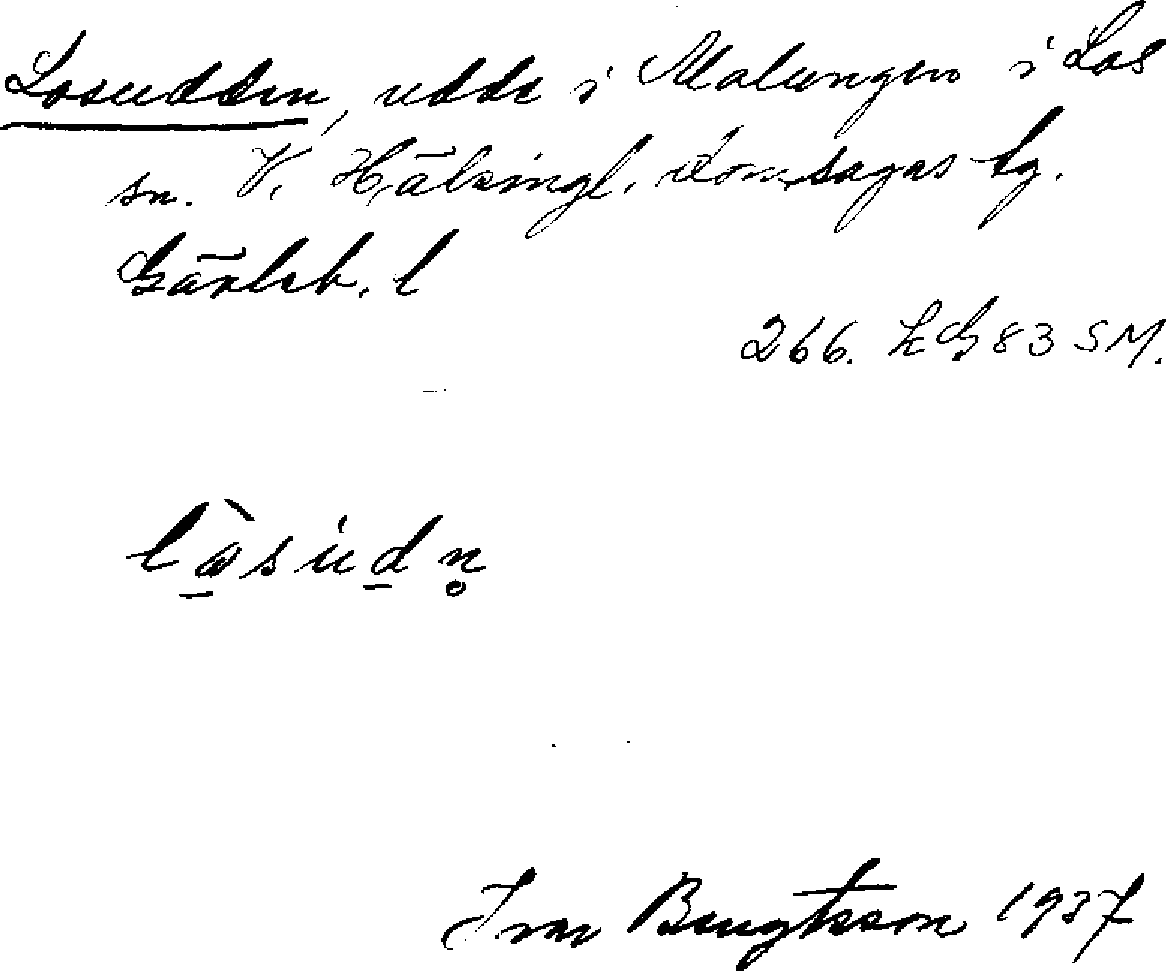 Losudden, udde i Malungen i Los
sn. V. Hälsingl. domsagas tg.
Gävleb. l
266. LG 83 SM.
lòsu̇dn̥
Ivar Bengtsson 1937